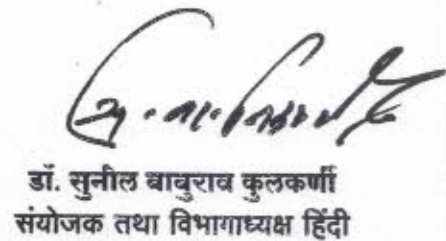 डॉ. सुनील बाबुराव कुलकर्णी
संयोजक तथा विभागाध्यक्ष हिंदी